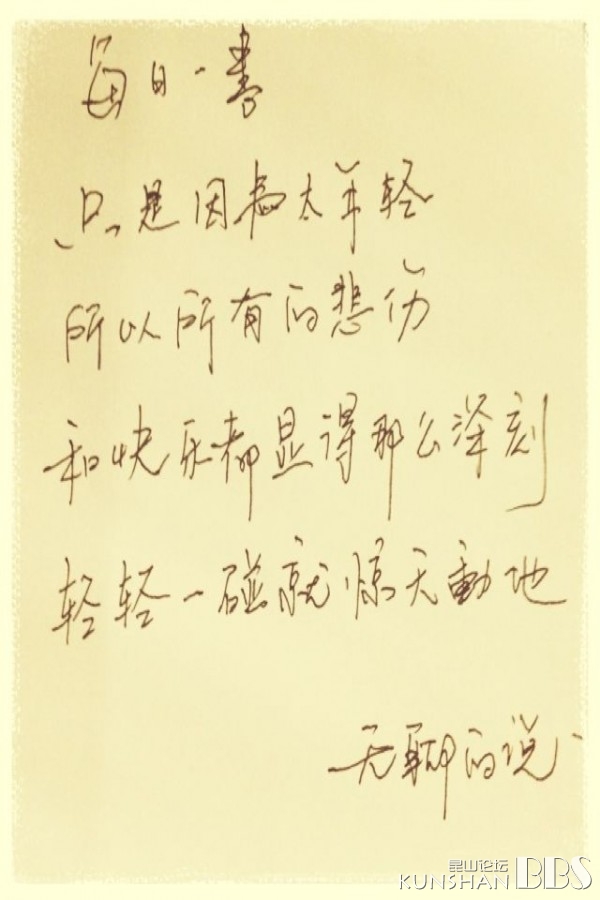 每日一書
只是因為太年轻
所以所有的悲伤
和快乐都显得那么深刻
轻轻一碰就惊天動地
无聊的说
昆山论坛
KUNSHAN BBS